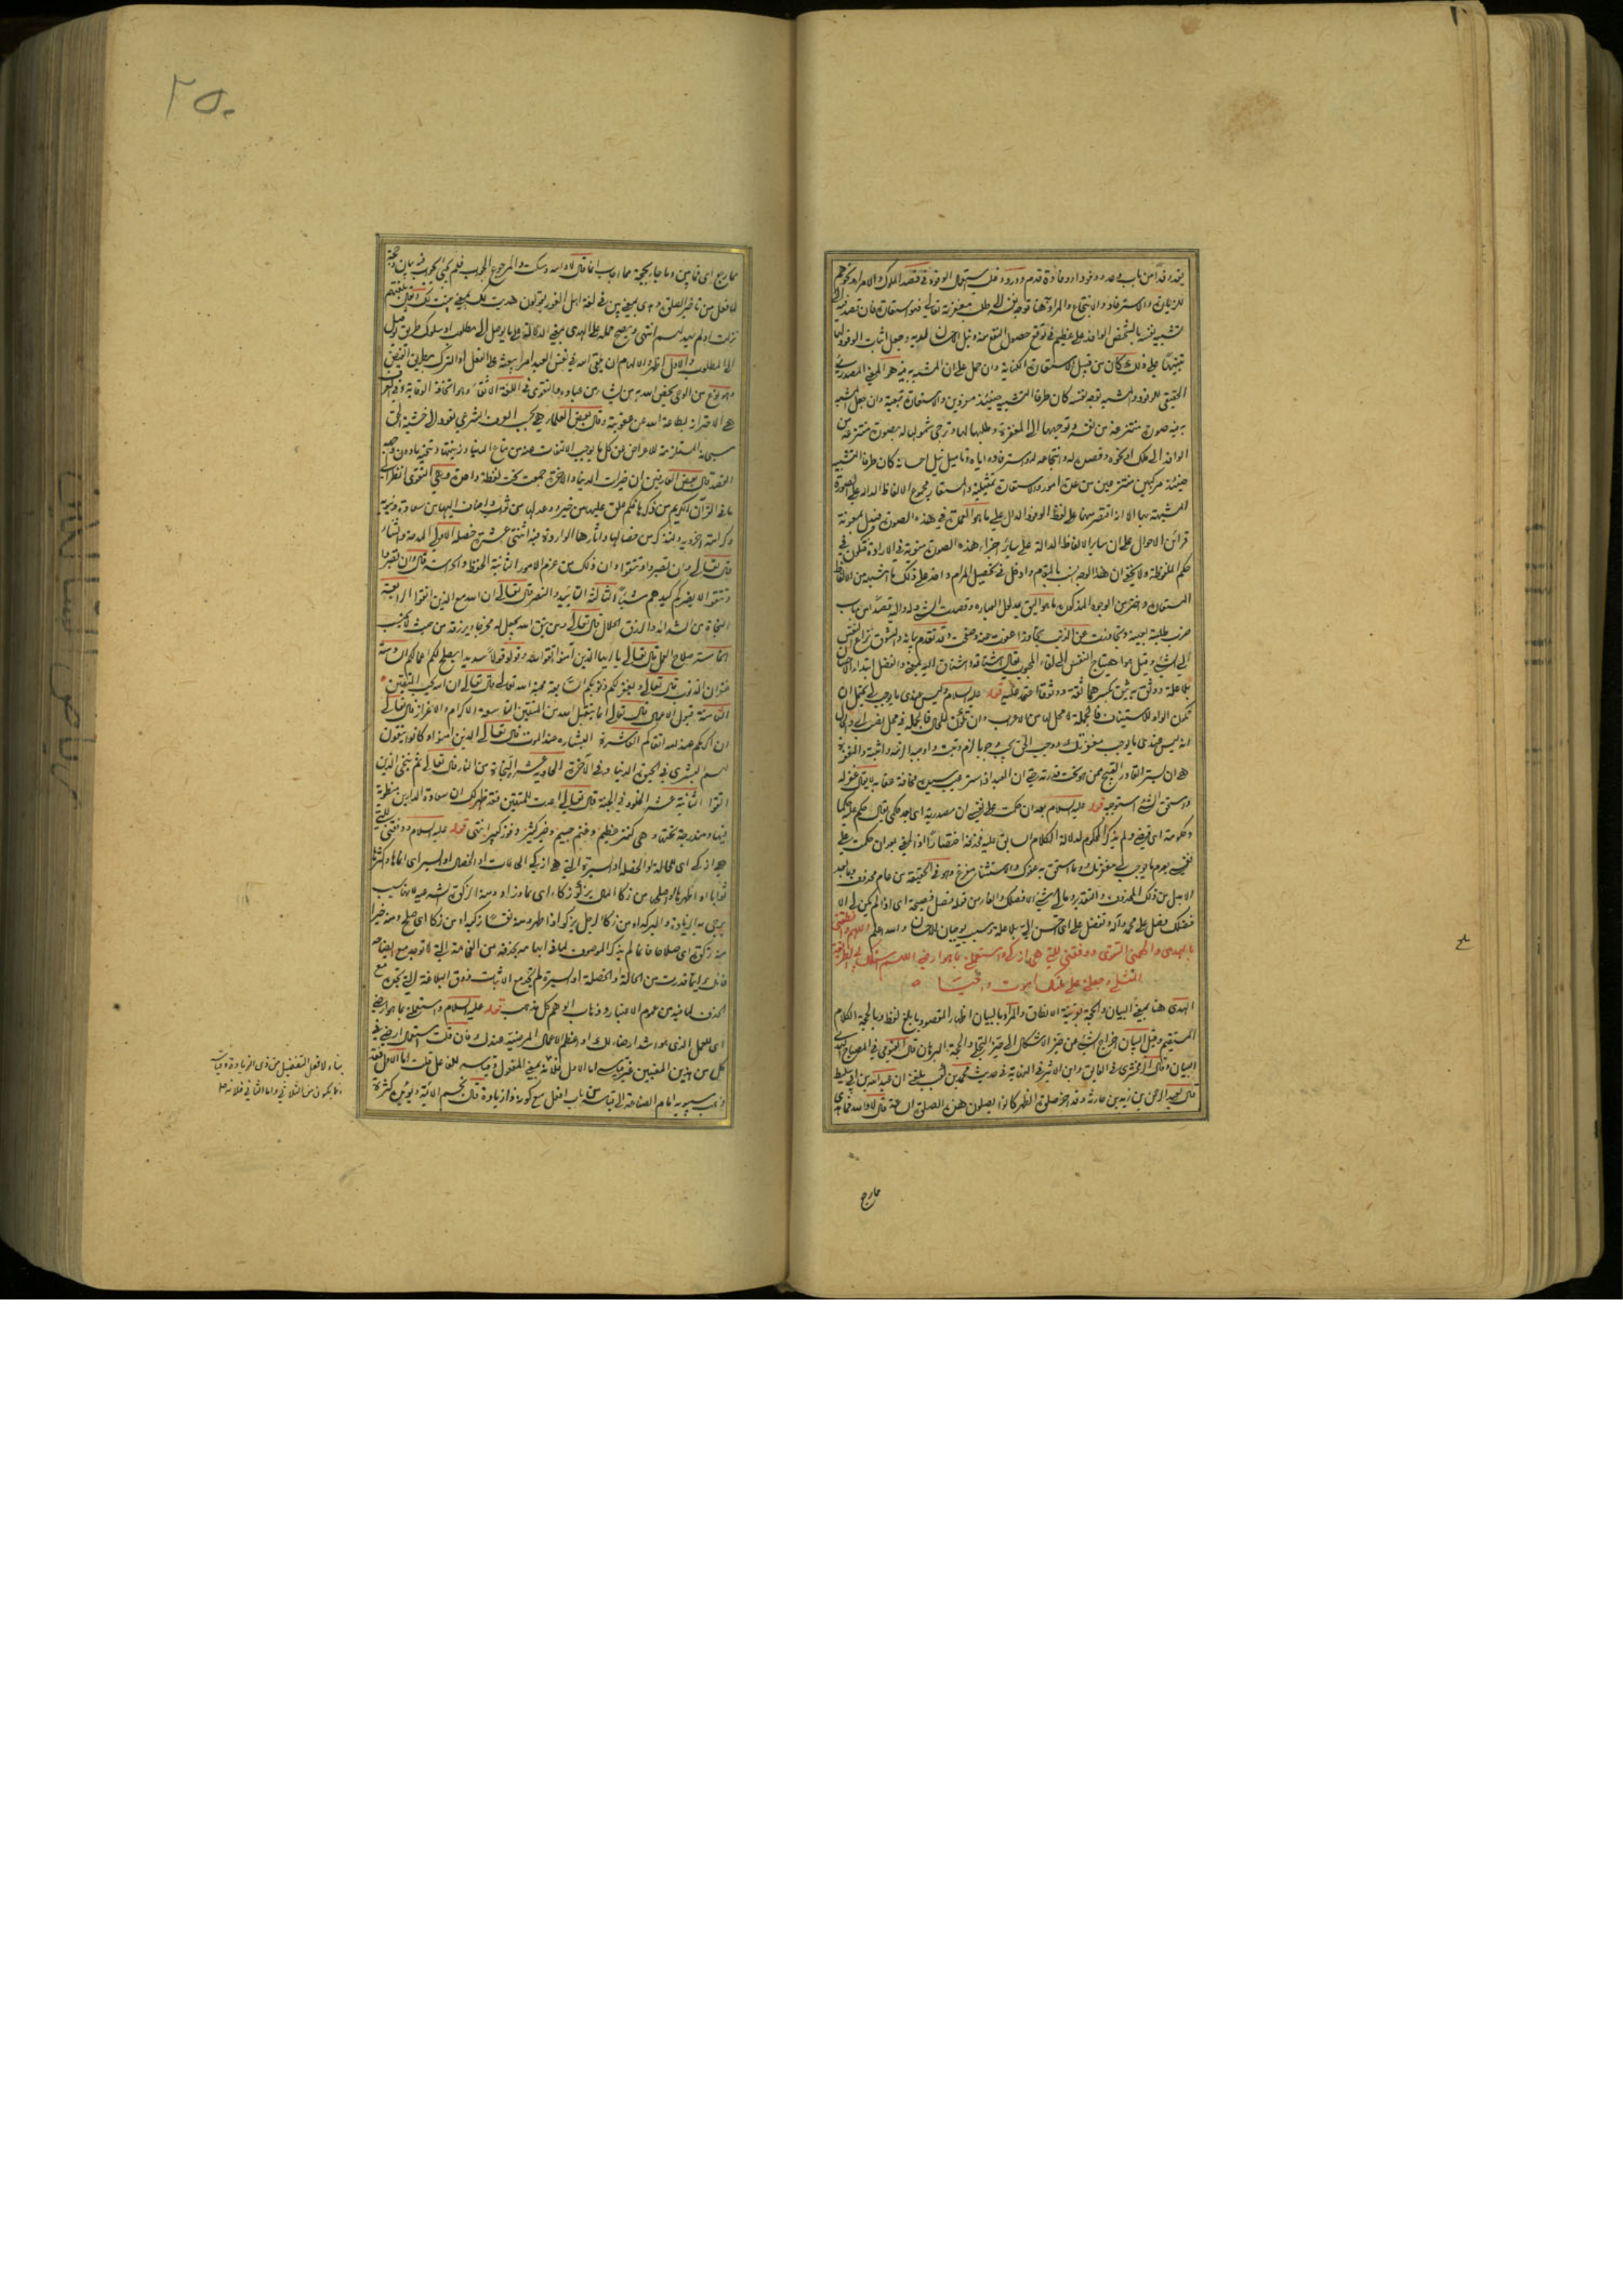 يفد وفدا من باب وعد ووفودا ووفادة قدم وورد وقد استعمال الوفود في قصد الملوك والامراء
للزيارة والاسترفاد والانتجاع والمراد هنا توجه نفسه الى طلب مغفرته تعالى
تشبيه نفسه بالشخص الوافد على عظيم في توقع حصول النفع منه ونيل الاحسان لديه وجعل اثبات الوفود لها
تنبيها على ذلك كان من قبيل الاستعارة بالكناية وان حمل على ان المشبه به فيه هو المعنى المصدري
الحقيقي للوفود والمشبه قصد نفسه كان طرفا التشبيه حينئذ مفردين والاستعارة تبعية وان جعل المشبه
به فيه صورة منتزعة من نفسه وتوجيهها الى المغفرة وطلبها لها وترجي شمولها له بصورة منتزعة من
الوافد الى ملك او نحوه وقصده له وانتجاعه له واسترفاده اياه وتاميل نيل احسانه كان طرفا التشبيه
حينئذ مركبين منتزعين من عدة امور والاستعارة تمثيلية والمستعار مجموع الالفاظ الدالة على الصورة
المشبهة بها الا انه اقتصر منها على لفظ الوفود الدال على ما هو العمدة في هذه الصورة بمعونة
قرائن الاحوال على ان ساير الالفاظ الدالة على ساير اجزاء هذه الصورة منوية في الارادة فتكون في
حكم الملفوظة ولا يخفى ان هذا الوجه انسب بالمقام وادخل في تحصيل المرام وقس على ذلك ما اشبهه من الالفاظ
المستعارة واختر من الوجوه المذكورة ما هو اليق بمدلول العبارة وقصدت الشيء وله واليه قصدا من باب
ضرب طلبته بعينه وتجاوزت عن الذنب تجاوزا عفوت عنه وصفحت وقد تقدم بيانه والشوق نزاع النفس
الى الشيء وقيل هو اهتياج النفس الى لقاء المحبوب يقال اشتاقه واشتاق اليه بمعنى والفضل ابتداء الاحسان
بلا علة ووثق به يثق بكسرهما ثقة ووثوقا اعتمد عليه قوله عليه السلام وليس عندي ما يوجب لي يحتمل ان
تكون الواو للاستيناف فالجملة لا محل لها من الاعراب وان تكون للحال فالجملة في محل نصب
انه ليس عندي ما يوجب مغفرتك ووجب الحق يجب وجوبا لزم وثبت واوجبه الزمه واثبته والمغفرة
هي ان يستر القادر القبيح ممن هو تحت قدرته حتى ان العبد اذا ستر عيب سيده مخافة عقابه لا يقال غفر له
واستحق الشيء استوجبه قوله عليه السلام بعد ان حكمت على نفسي ان مصدرية اي بعد حكمي يقال حكم عليه حكما
وحكومة اي قضى ولم يذكر المحكوم به لدلالة الكلام السابق عليه فحذفه اختصارا اذ المعنى بعد ان حكمت على
نفسي بعدم ما يوجب لي مغفرتك وما استحق به عفوك والاستثناء مفرغ وهو في الحقيقة من عام محذوف وما بعد
الا بدل من ذلك المحذوف والتقدير وما لي شيء الا فضلك والفاء من قوله فصل فصيحة اي اذا لم يكن لي الا
فضلك فصل على محمد وآله وتفضل علي اي احسن الي بلا علة وسبب يوجبان الاحسان والله اعلم اللهم وانطقني
بالهدى والهمني التقوى ووفقني للتي هي ازكى واستعملني بما هو ارضى اللهم اسلك بي الطريقة
المثلى واجعلني على ملتك اموت واحيى
الهدى هنا بمعنى البيان والحجة بقرينة الانطاق والمراد بالبيان اظهار المقصود بابلغ لفظ وبالحجة الكلام
المستقيم وقيل البيان اخراج الشيء من حيز الاشكال الى حيز التجلي والحجة البرهان قال الفيومي في المصباح الهدى
البيان وقال الزمخشري في الفايق وابن الاثير في النهاية في حديث محمد بن كعب بلغني ان عبد الله بن ابي سليط
قال لعبد الرحمن بن زيد بن حارثة وقد اخر صلوة الظهر اكانوا يصلون هذه الصلوة الساعة قال لا والله فما هدى
مما رجع
٢٥٠
مما رجع اي فما بين وما جاء بحجة مما اجاب انما قال لا والله وسكت والمرجوع الجواب فلم يجئ بجواب فيه بيان وحجة
لما فعل من تاخير الصلوة وهدى بمعنى بين في لغة اهل الغور يقولون هديت لك بمعنى بينت لك
نزلت اولم يهد لهم انتهى ويصح حمله على الهدى بمعنى الدلالة على ما يوصل الى المطلوب او سلوك طريق يوصل
الى المطلوب والاول اظهر والالهام ان يلقي الله في نفس العبد امرا يبعثه على الفعل او الترك بطريق الفيض
وهو نوع من الوحي يخص الله به من يشاء من عباده والتقوى في اللغة الاتقاء وهو اتخاذ الوقاية وفي العرف
هي الاحتراز بطاعة الله عن عقوبته وقال بعض العلماء هي بحسب العرف الشرعي تعود الى خشية الحق
سبحانه المستلزمة للاعراض عن كل ما يوجب الالتفات عنه من متاع الدنيا وزينتها وتنحية ما دون وجهة
القصد قال بعض العارفين ان خيرات الدنيا والاخرة جمعت تحت لفظة واحدة وهي التقوى انظر الى
ما في القرآن الكريم من ذكرها فكم علق عليها من خير ووعد لها من ثواب واضاف اليها من سعادة دنيوية
وكرامة اخروية ولنذكر من خصالها واثارها الواردة فيه اثنتي عشرة خصلة الاولى المدحة والثناء
قال تعالى وان تصبروا وتتقوا فان ذلك من عزم الامور الثانية الحفظ والحراسة قال وان تصبروا
وتتقوا لا يضركم كيدهم شيئا الثالثة التاييد والنصر قال تعالى ان الله مع الذين اتقوا الرابعة
النجاة من الشدائد والرزق الحلال قال تعالى ومن يتق الله يجعل له مخرجا ويرزقه من حيث لا يحتسب
الخامسة صلاح العمل قال تعالى يا ايها الذين آمنوا اتقوا الله وقولوا قولا سديدا يصلح لكم اعمالكم السادسة
غفران الذنوب قال تعالى ويغفر لكم ذنوبكم السابعة محبة الله تعالى قال تعالى ان الله يحب المتقين
الثامنة قبول الاعمال قال تعالى انما يتقبل الله من المتقين التاسعة الاكرام والاعزاز قال تعالى
ان اكرمكم عند الله اتقاكم العاشرة البشارة عند الموت قال تعالى الذين آمنوا وكانوا يتقون
لهم البشرى في الحيوة الدنيا وفي الآخرة الحادية عشر النجاة من النار قال تعالى ثم ننجي الذين
اتقوا الثانية عشر الخلود في الجنة قال تعالى اعدت للمتقين فقد ظهر لك ان سعادة الدارين منطوية
فيها ومندرجة تحتها وهي كنز عظيم وغنم جسيم وخير كثير وفوز كبير انتهى قوله عليه السلام ووفقني للتي
هي ازكى اي للحالة او الخصلة او السيرة التي هي ازكى الحالات او الخصال او السير اي انماها واكثرها
ثوابا او اطهرها او اصلحها من زكا المال يزكو زكاء اي نما وزاد ومنه الزكوة
يرجى به الزيادة والبركة او من زكا الرجل يزكو اذا طهر ومنه نفسا زكية او من زكا اي صلح ومنه خيرا
منه زكوة اي صلاحا وانما لم يذكر الموصوف لما في ابهامه بحذفه من الفخامة التي لا توجد مع ايضاحه
فانك اينما قدرت من الحالة والخصلة او السيرة لم تجد مع الاثبات ذوق البلاغة التي تجده مع
الحذف لما فيه من عموم الاعتبار وذهاب الوهم كل مذهب قوله عليه السلام واستعملني بما هو ارضى
اي للعمل الذي هو اشد ارضاء لك او اعظم الاعمال المرضية عندك فان قلت استعمال ارضى في
كل من هذين المعنيين غير قياسي اما الاول فلانه بمعنى المفعول وقياسه للفاعل قلت اما الاول فقد
ذهب سيبويه امام الصناعة الى قياسه من باب افعل مع كونه ذا زيادة قال نجم الائمة ويؤيده كثرة
بناء لافعل التفضيل من ذي الزيادة وقياسه
انما يكون من الثلاثي واما الثاني فلانه